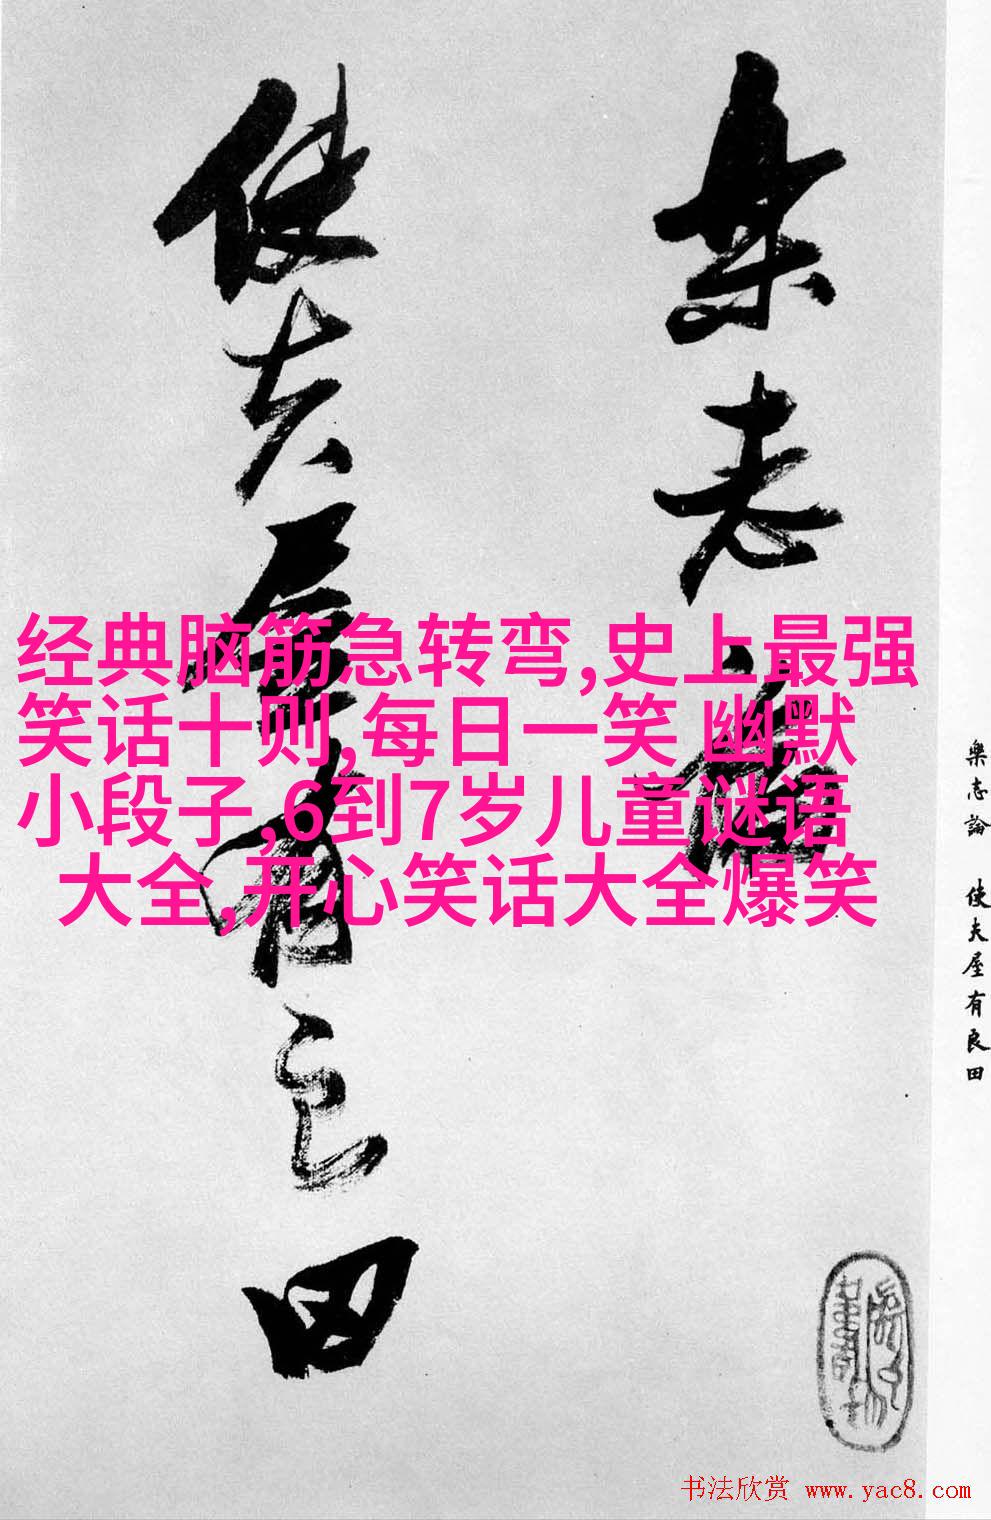 樂志論
使夫屋有良田
经典脑筋急转弯,史上最强
笑话十则,每日一笑 幽默
小段子,6到7岁儿童谜语
大全,开心笑话大全爆笑
樂志論 使夫屋有良田
书法欣赏 www.yac8.com